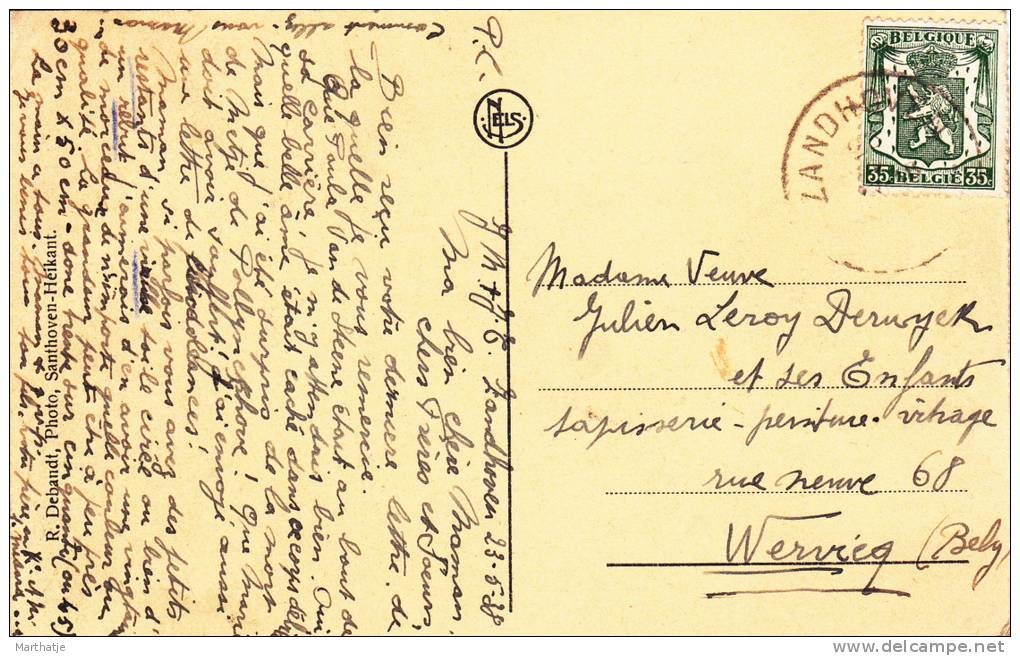 P.C.
J.M.J.C. Zandhoven 23-5-38
Ma bien chère Maman
chers Frères et Soeurs,
Bien reçu votre dernière lettre. de
la quelle je vous remercie.
Que Paula Van de Steene était au bout de
sa carrière, je m'y attendais bien. Oui
quelle belle âme était caché dans ce corps
Mais que j'ai été surpris de la mort
de Metje de Pollynckhove! Que Marie
doit avoir souffert, j'ai envoyé aussi
une lettre de condoléances!
Maman si parfois vous avez des petits
restants d'une toile cirée ou bien d'
un j'aimerais d'en avoir une
de morceaux n'importe quelle couleur ou
qualité. La grandeur peut être à peu près
30 cm x 50 cm - donc trente sur cinquante (ou 45)
La main à tous. Maman
Comment allez-vous Maman
R. Debaudt, Photo, Santhoven-Heikant.
NELS
BELGIQUE
35 BELGIË 35
ZANDHOV
Madame Veuve
Julien Leroy Deruyck
et ses Enfants
tapisserie - peinture - vitrage
rue neuve 68
Wervicq (Belg
Marthatje